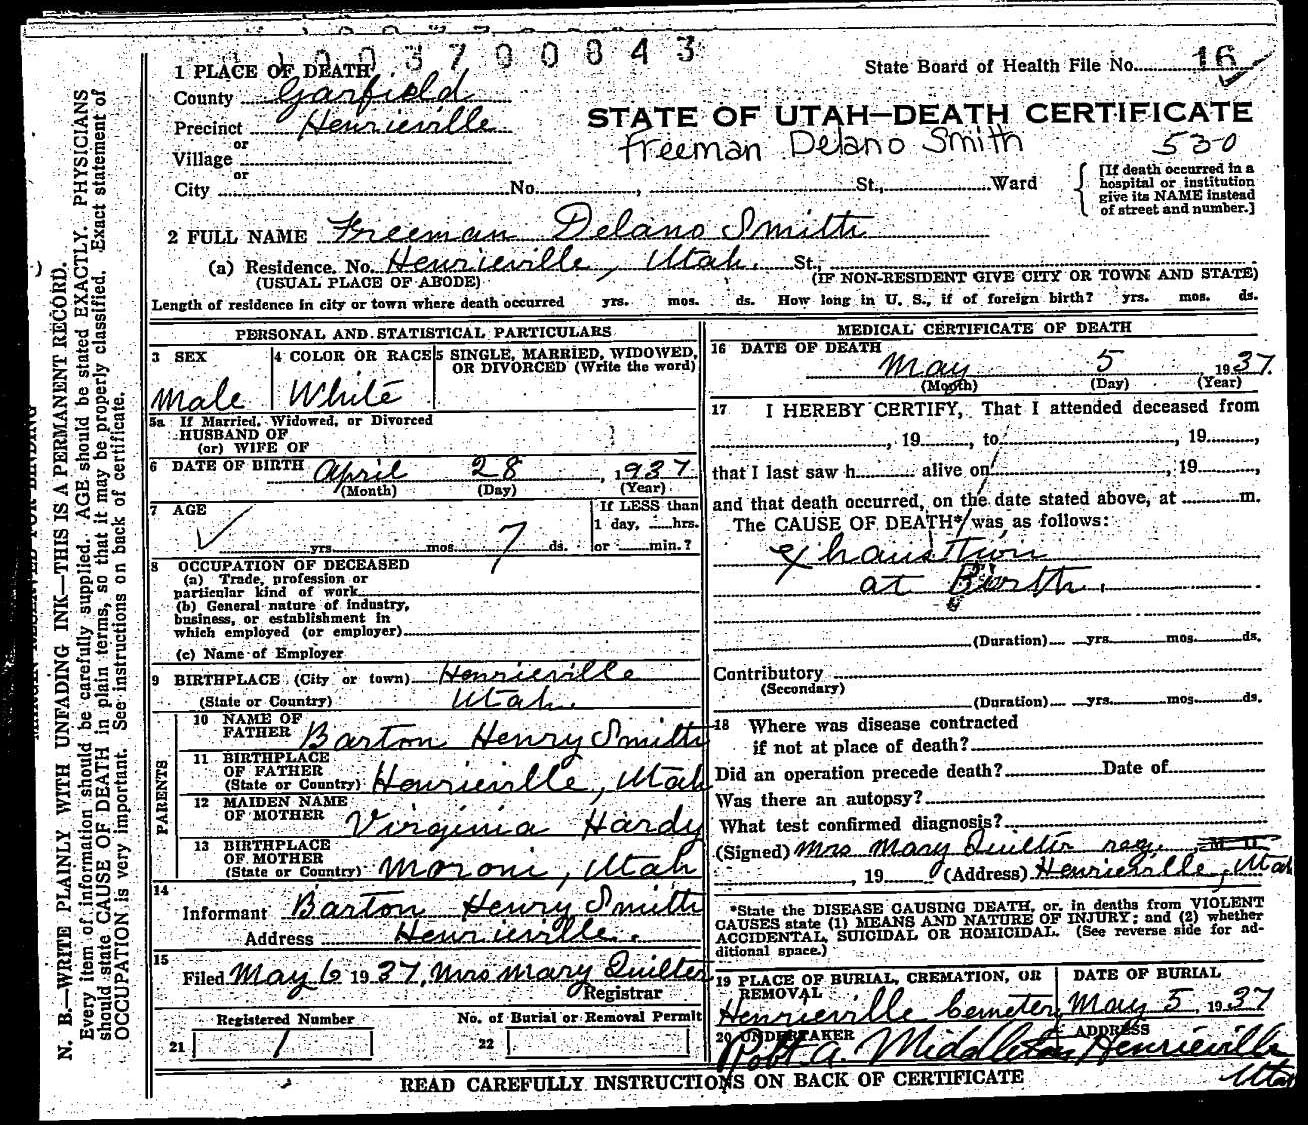 1 0 0 3 7 0 0 8 4 3
State Board of Health File No. 16
1 PLACE OF DEATH
County Garfield
Precinct Henrieville
or
Village
or
City No. , St., Ward
STATE OF UTAH—DEATH CERTIFICATE
Freeman Delano Smith 530
[If death occurred in a
hospital or institution
give its NAME instead
of street and number.]
2 FULL NAME Freeman Delano Smith
(a) Residence. No. Henrieville, Utah. St.,
(USUAL PLACE OF ABODE) (IF NON-RESIDENT GIVE CITY OR TOWN AND STATE)
Length of residence in city or town where death occurred yrs. mos. ds. How long in U. S., if of foreign birth? yrs. mos. ds.
PERSONAL AND STATISTICAL PARTICULARS
3 SEX
Male
4 COLOR OR RACE
White
5 SINGLE, MARRIED, WIDOWED,
OR DIVORCED (Write the word)
5a If Married, Widowed, or Divorced
HUSBAND OF
(or) WIFE OF
6 DATE OF BIRTH April 28, 1937
(Month) (Day) (Year)
7 AGE
yrs. mos. 7 ds.
If LESS than
1 day, hrs.
or min.?
8 OCCUPATION OF DECEASED
(a) Trade, profession or
particular kind of work
(b) General nature of industry,
business, or establishment in
which employed (or employer)
(c) Name of Employer
9 BIRTHPLACE (City or town) Henrieville
(State or Country) Utah.
PARENTS
10 NAME OF
FATHER Barton Henry Smith
11 BIRTHPLACE
OF FATHER
(State or Country) Henrieville, Utah
12 MAIDEN NAME
OF MOTHER Virginia Hardy
13 BIRTHPLACE
OF MOTHER
(State or Country) Moroni, Utah
14
Informant Barton Henry Smith
Address Henrieville.
15
Filed May 6 1937, Mrs Mary Quilter
Registrar
Registered Number
21 1
No. of Burial or Removal Permit
22
MEDICAL CERTIFICATE OF DEATH
16 DATE OF DEATH
May 5, 1937.
(Month) (Day) (Year)
17 I HEREBY CERTIFY, That I attended deceased from
, 19 , to , 19 ,
that I last saw h alive on , 19 ,
and that death occurred, on the date stated above, at m.
The CAUSE OF DEATH* was as follows:
Exhausttion
at Birth.
(Duration) yrs. mos. ds.
Contributory
(Secondary)
(Duration) yrs. mos. ds.
18 Where was disease contracted
if not at place of death?
Did an operation precede death? Date of
Was there an autopsy?
What test confirmed diagnosis?
(Signed) Mrs Mary Quilter reg. M. D.
, 19 (Address) Henrieville, Utah
*State the DISEASE CAUSING DEATH, or, in deaths from VIOLENT
CAUSES state (1) MEANS AND NATURE OF INJURY; and (2) whether
ACCIDENTAL, SUICIDAL OR HOMICIDAL. (See reverse side for ad-
ditional space.)
19 PLACE OF BURIAL, CREMATION, OR
REMOVAL
Henrieville Cemetery
DATE OF BURIAL
May 5, 1937
20 UNDERTAKER
Robt A. Middleton
ADDRESS
Henrieville
Utah
READ CAREFULLY INSTRUCTIONS ON BACK OF CERTIFICATE
N. B.—WRITE PLAINLY WITH UNFADING INK—THIS IS A PERMANENT RECORD.
Every item of information should be carefully supplied. AGE should be stated EXACTLY. PHYSICIANS
should state CAUSE OF DEATH in plain terms, so that it may be properly classified. Exact statement of
OCCUPATION is very important. See instructions on back of certificate.